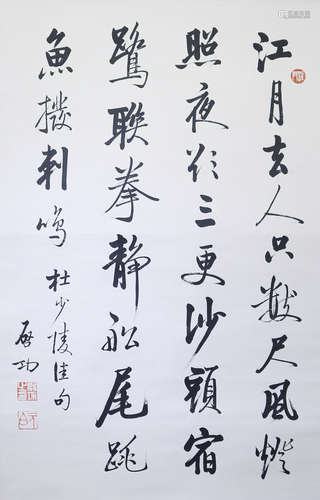 江月去人只數尺風燈
照夜欲三更沙頭宿
鷺聯拳靜船尾跳
魚撥剌鳴
杜少陵佳句
啟功